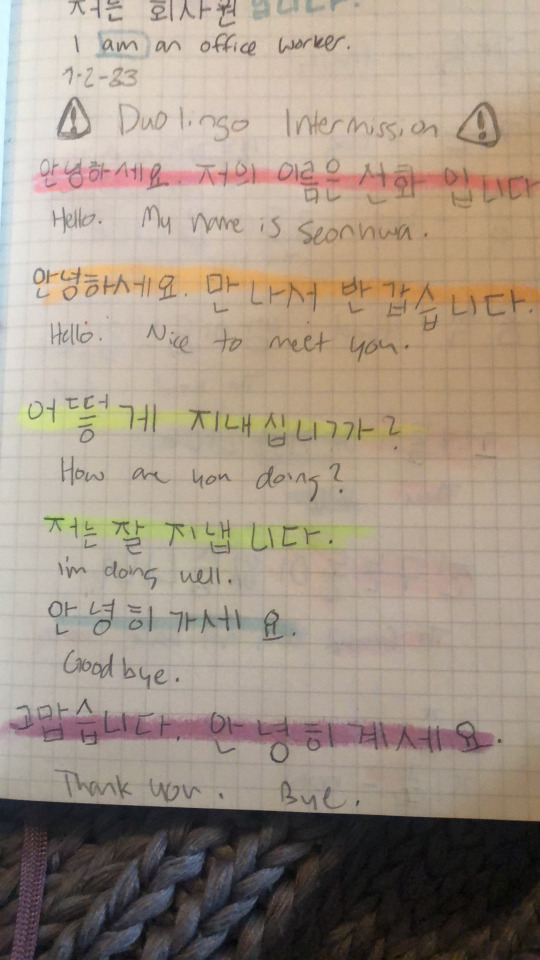 저는 회사원 입니다.
I am an office worker.
1-2-23
Duolingo Intermission
안녕하세요. 저의 이름은 선화 입니다
Hello. My name is Seonhwa.
안녕하세요. 만나서 반갑습니다.
Hello. Nice to meet you.
어떻게 지내십니까?
How are you doing?
저는 잘 지냅니다.
i'm doing well.
안녕히 가세요.
Goodbye.
고맙습니다. 안녕히 계세요.
Thank you. Bye.